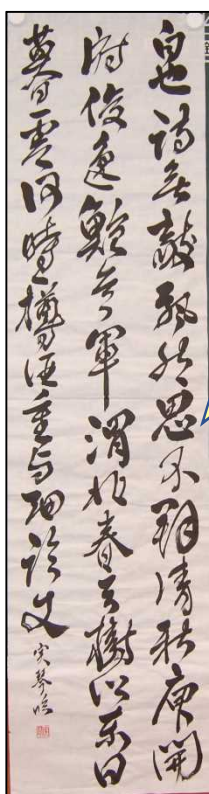 白也詩無敵飄然思不群清新庾開
府俊逸鮑参軍渭北春天樹江東日
暮雲何時一樽酒重与細論文
実琴臨